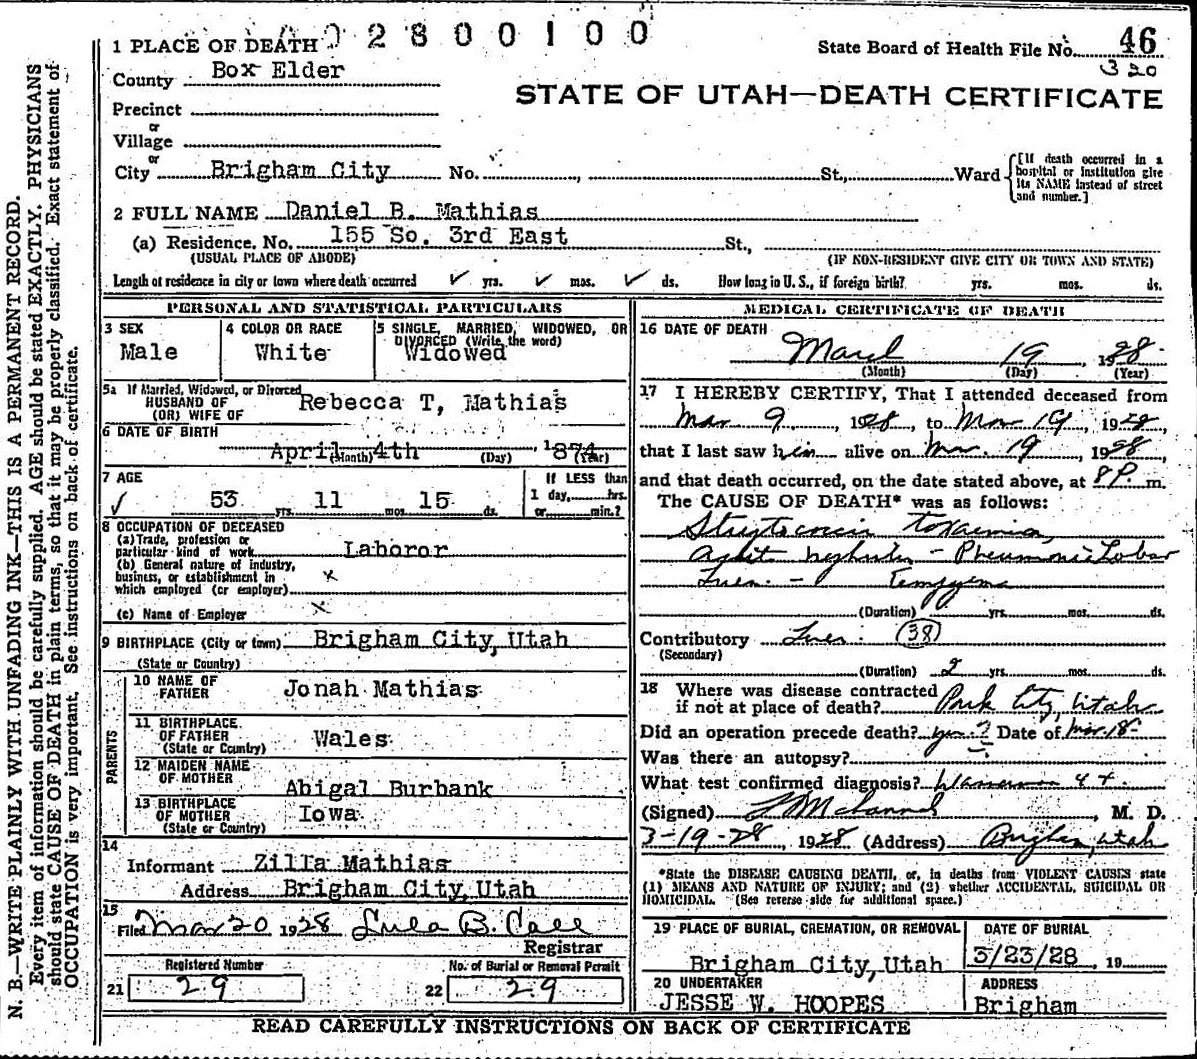 0 2 8 0 0 1 0 0
1 PLACE OF DEATH
State Board of Health File No. 46
320
County Box Elder
STATE OF UTAH—DEATH CERTIFICATE
Precinct
or
Village
or
City Brigham City No. , St., Ward
[If death occurred in a hospital or institution give its NAME instead of street and number.]
2 FULL NAME Daniel B. Mathias
(a) Residence, No. 155 So. 3rd East St.,
(USUAL PLACE OF ABODE) (IF NON-RESIDENT GIVE CITY OR TOWN AND STATE)
Length of residence in city or town where death occurred ✓ yrs. ✓ mos. ✓ ds. How long in U. S., if foreign birth? yrs. mos. ds.
PERSONAL AND STATISTICAL PARTICULARS
3 SEX
Male
4 COLOR OR RACE
White
5 SINGLE, MARRIED, WIDOWED, OR
DIVORCED (Write the word)
Widowed
5a If Married, Widowed, or Divorced
HUSBAND OF
(OR) WIFE OF Rebecca T, Mathias
6 DATE OF BIRTH
April 4th 1874
(Month) (Day) (Year)
7 AGE
✓ 53 yrs. 11 mos. 15 ds.
If LESS than
1 day, hrs.
or min.?
8 OCCUPATION OF DECEASED
(a) Trade, profession or
particular kind of work Laboror
(b) General nature of industry,
business, or establishment in
which employed (or employer) x
(c) Name of Employer x
9 BIRTHPLACE (City or town) Brigham City, Utah
(State or Country)
PARENTS
10 NAME OF
FATHER Jonah Mathias
11 BIRTHPLACE
OF FATHER Wales
(State or Country)
12 MAIDEN NAME
OF MOTHER
Abigal Burbank
13 BIRTHPLACE
OF MOTHER Iowa
(State or Country)
14
Informant Zilla Mathias
Address Brigham City, Utah
15
Filed Mar 20 1928 Lula B. Call
Registrar
Registered Number
21 29
No. of Burial or Removal Permit
22 29
MEDICAL CERTIFICATE OF DEATH
16 DATE OF DEATH
March 19, 1928
(Month) (Day) (Year)
17 I HEREBY CERTIFY, That I attended deceased from
Mar 9, 1928, to Mar 19, 1928,
that I last saw him alive on Mar. 19, 1928,
and that death occurred, on the date stated above, at 8 P. m.
The CAUSE OF DEATH* was as follows:
toxaemia,
nephritis - Pneumonia Lobar
Lues - Empyema
(Duration) yrs. mos. ds.
Contributory Lues. (38)
(Secondary)
(Duration) 2 yrs. mos. ds.
18 Where was disease contracted
if not at place of death? Park City, Utah
Did an operation precede death? yes? Date of Mar. 18-
Was there an autopsy?
What test confirmed diagnosis? 4+.
(Signed) , M. D.
3-19-28, 1928 (Address) Brigham, Utah
*State the DISEASE CAUSING DEATH, or, in deaths from VIOLENT CAUSES state
(1) MEANS AND NATURE OF INJURY; and (2) whether ACCIDENTAL, SUICIDAL OR
HOMICIDAL. (See reverse side for additional space.)
19 PLACE OF BURIAL, CREMATION, OR REMOVAL
Brigham City, Utah
DATE OF BURIAL
3/23/28, 19
20 UNDERTAKER
JESSE W. HOOPES
ADDRESS
Brigham
READ CAREFULLY INSTRUCTIONS ON BACK OF CERTIFICATE
N. B.—WRITE PLAINLY WITH UNFADING INK—THIS IS A PERMANENT RECORD.
Every item of information should be carefully supplied. AGE should be stated EXACTLY. PHYSICIANS
should state CAUSE OF DEATH in plain terms, so that it may be properly classified. Exact statement of
OCCUPATION is very important. See instructions on back of certificate.